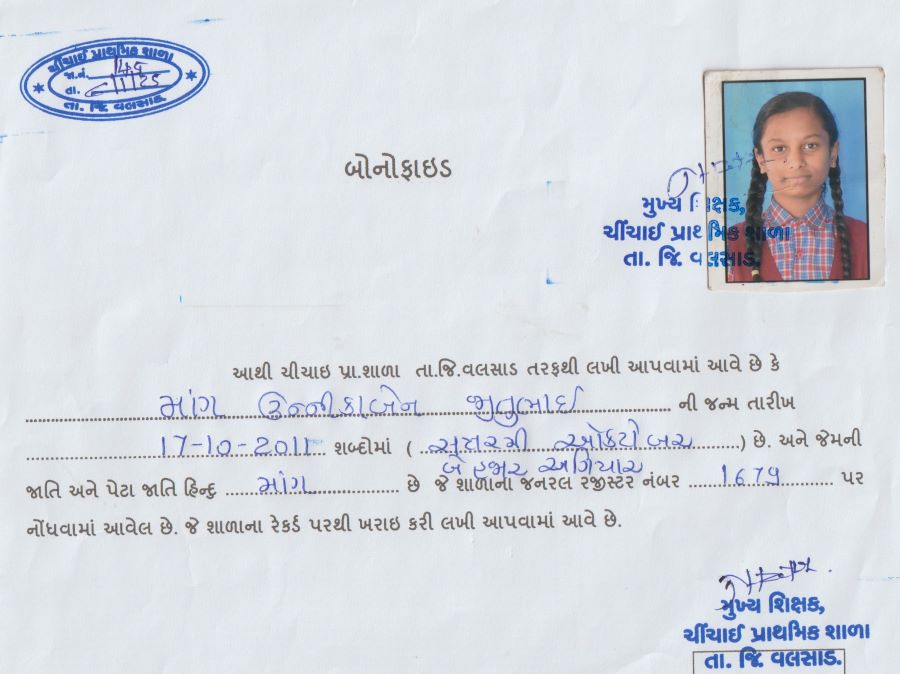 ચીંચાઈ પ્રાથમિક શાળા
જા.નં.
તા.
તા. જિ. વલસાડ.
બોનોફાઇડ
મુખ્ય શિક્ષક,
ચીંચાઈ પ્રાથમિક શાળા
તા. જિ. વલસાડ.
આથી ચીચાઇ પ્રા.શાળા તા.જિ.વલસાડ તરફથી લખી આપવામાં આવે છે કે
માંગ ઉન્નીકાબેન જીતુભાઈ ની જન્મ તારીખ
17-10-2011 શબ્દોમાં ( સત્તરમી ઓક્ટોબર ) છે. અને જેમની
બે હજાર અગિયાર
જાતિ અને પેટા જાતિ હિન્દુ માંગ છે જે શાળાના જનરલ રજીસ્ટર નંબર 1679 પર
નોંધવામાં આવેલ છે. જે શાળાના રેકર્ડ પરથી ખરાઇ કરી લખી આપવામાં આવે છે.
મુખ્ય શિક્ષક,
ચીંચાઈ પ્રાથમિક શાળા
તા. જિ. વલસાડ.